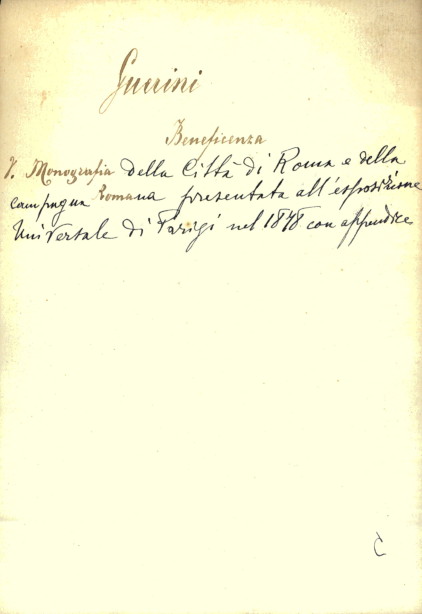 Guerini
Beneficenza
V. Monografia della Città di Roma e della
campagna Romana presentata all'esposizione
Universale di Parigi nel 1878 con appendice
C